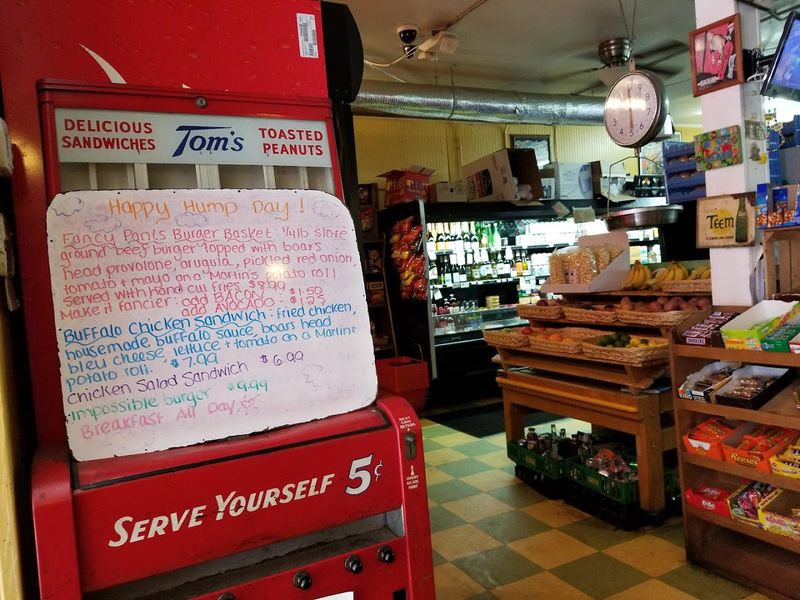 DELICIOUS
SANDWICHES
Tom's
TOASTED
PEANUTS
Happy Hump Day!
Fancy Pants Burger Basket: 1/4 lb store
ground beef burger topped with boars
head provolone, arugula, pickled red onion,
tomato + mayo on a Martin's potato roll.
served with hand cut fries. $8.99
Make it fancier: add BACON $1.50
add AVOCADO $1.25
Buffalo Chicken Sandwich: fried chicken,
housemade buffalo sauce, boars head
bleu cheese, lettuce + tomato on a Martins
potato roll. $7.99
Chicken Salad Sandwich $6.99
impossible burger $9.99
Breakfast All Day
SERVE YOURSELF 5¢
TEEM
Reese's